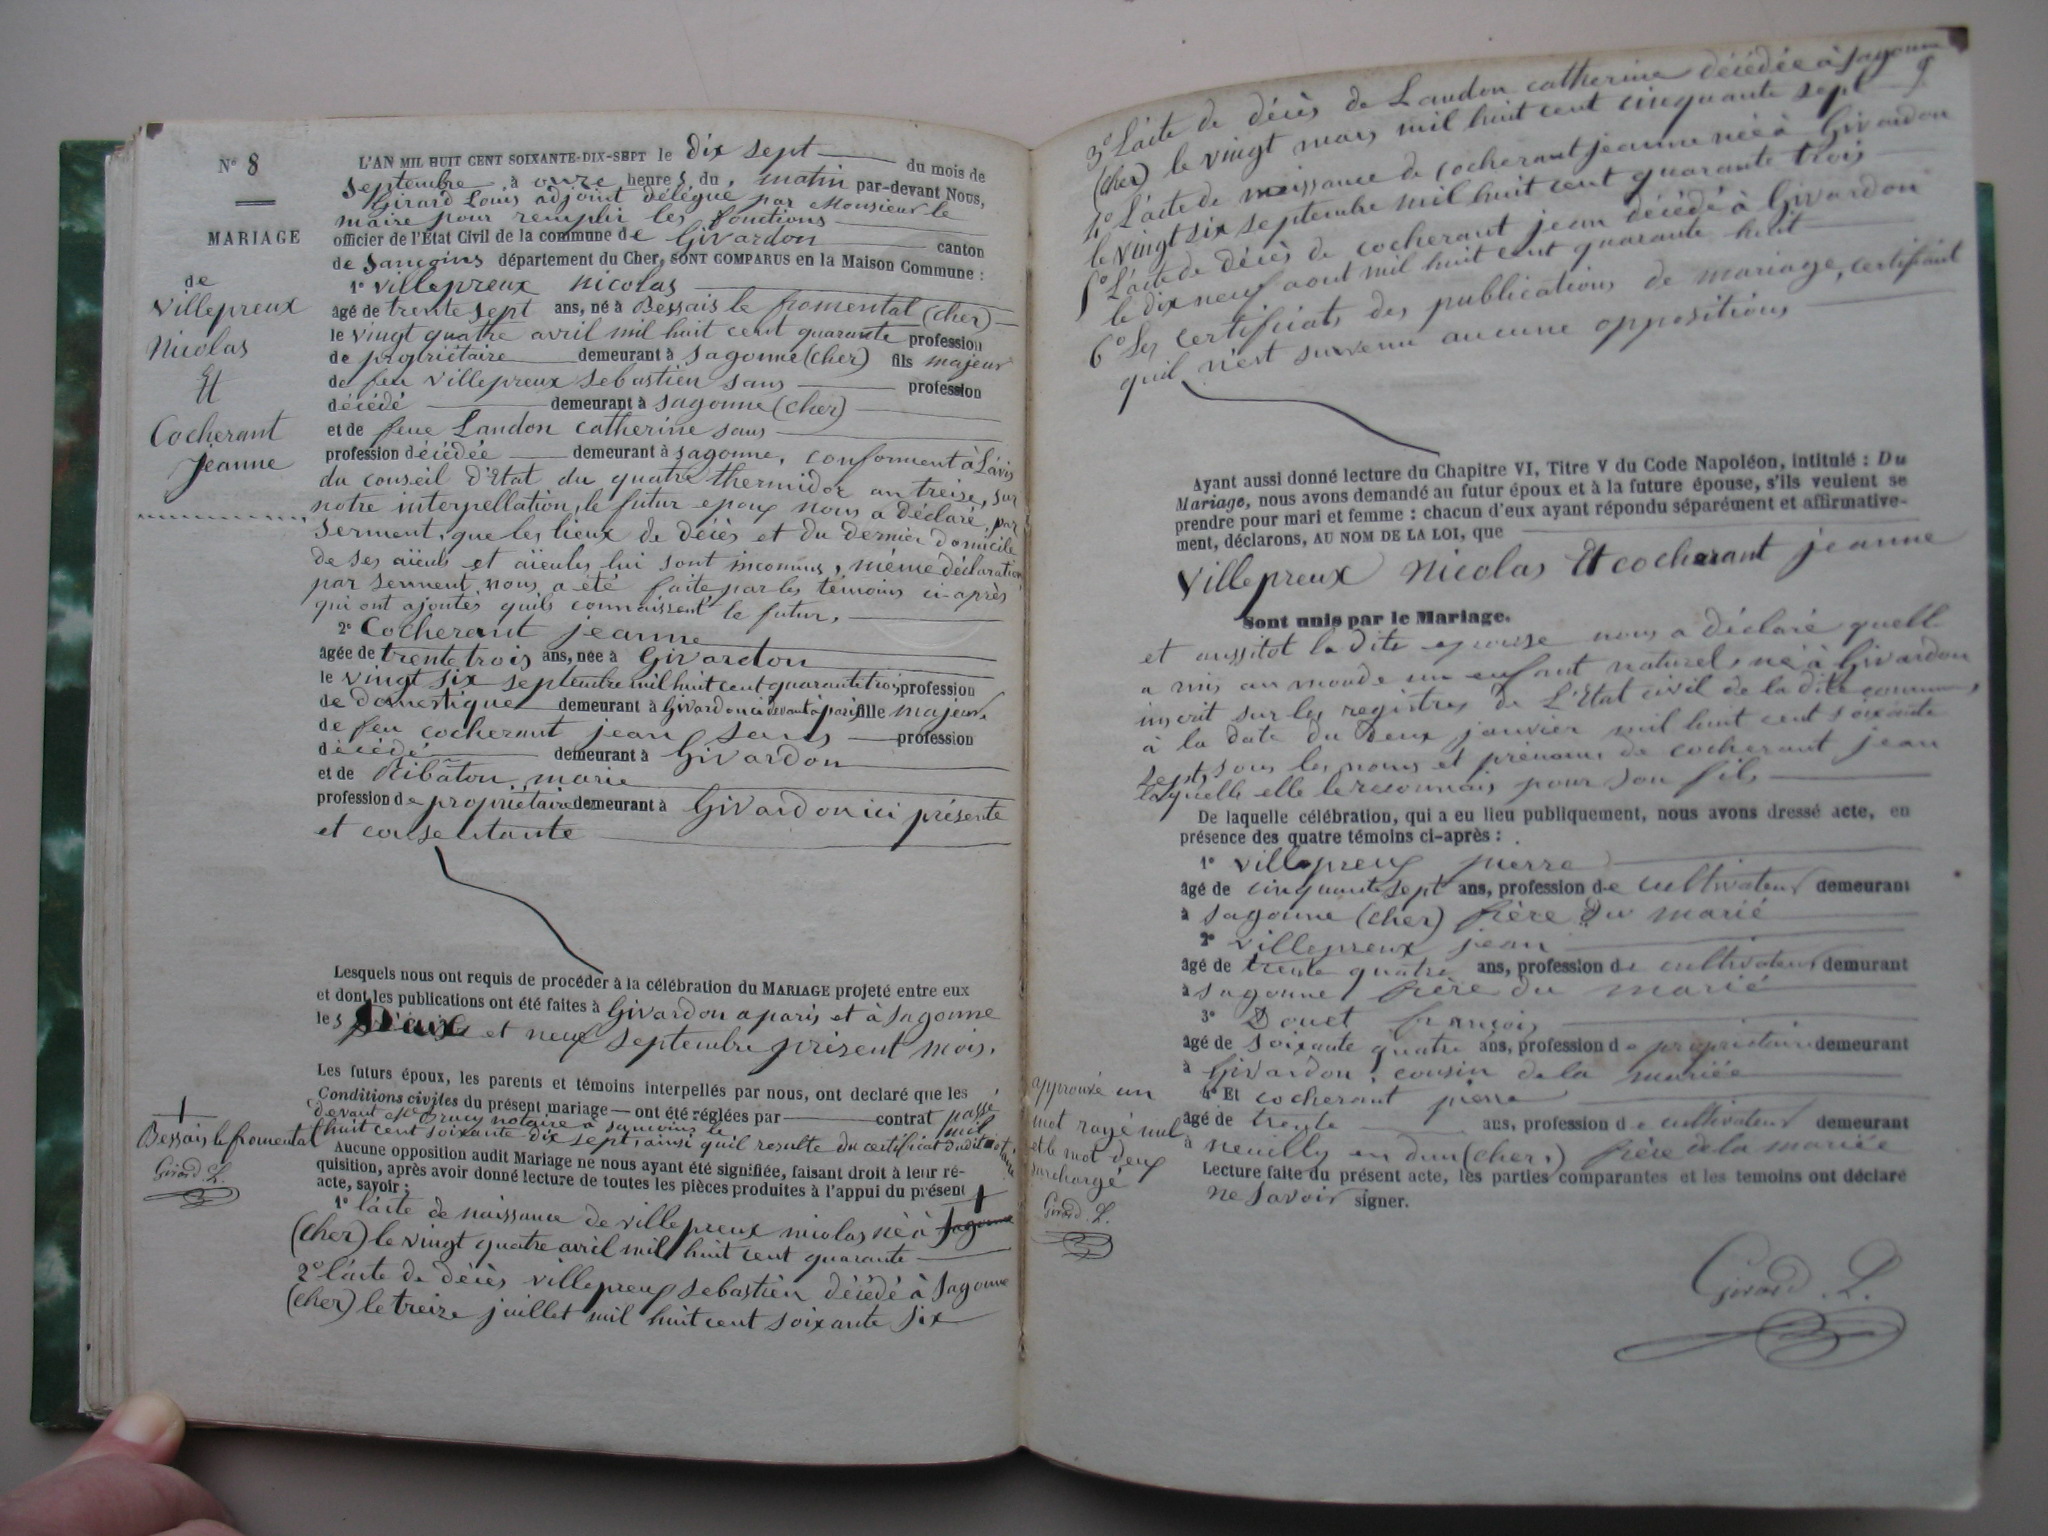 N° 8
MARIAGE
de
Villepreux
Nicolas
Et
Cocherant
Jeanne
L'AN MIL HUIT CENT SOIXANTE-DIX-SEPT le dix sept du mois de
Septembre à onze heures du matin par-devant Nous,
Girard Louis adjoint délégué par Monsieur le
maire pour remplir les fonctions
officier de l'État Civil de la commune de Givardon canton
de Sancoins département du Cher, SONT COMPARUS en la Maison Commune :
1° Villepreux Nicolas
âgé de trente sept ans, né à Bessais le fromental (cher)
le vingt quatre avril mil huit cent quarante profession
de propriétaire demeurant à Sagonne (cher) fils majeur
de feu Villepreux Sebastien sans profession
décédé demeurant à Sagonne (cher)
et de feue Landon catherine sans
profession décédée demeurant à Sagonne, conforment à L'avis
du conseil d'Etat du quatre thermidor an treise, sur
notre interpellation, le futur epoux nous a déclaré, par
Serment, que les lieux de décès et du dernier domicile
de ses aïeuls et aïeules lui sont inconnus, même déclaration
par serment nous a été faite par les témoins ci-après
qui ont ajoutés quils connaissent le futur,
2° Cocherant jeanne
âgée de trente trois ans, née à Givardon
le vingt six septembre mil huit cent quarante trois profession
de domestique demeurant à Givardon ci devant à paris fille majeure
de feu cocherant jean sans profession
décédé demeurant à Givardon
et de Ribâton marie
profession de propriétaire demeurant à Givardon ici présente
et consentante
Lesquels nous ont requis de procéder à la célébration du MARIAGE projeté entre eux
et dont les publications ont été faites à Givardon a paris et à Sagonne
les Deux et neuf Septembre présent mois.
Les futurs époux, les parents et témoins interpellés par nous, ont declaré que les
Conditions civiles du présent mariage — ont été réglées par contrat passé
devant Me notaire à Sancoins le mil
huit cent soixante dix sept, ainsi quil resulte du certificat dudit notaire
Aucune opposition audit Mariage ne nous ayant été signifiée, faisant droit à leur ré-
quisition, après avoir donné lecture de toutes les pièces produites à l'appui du présent
acte, savoir :
1° l'acte de naissance de villepreux nicolas né à Sagonne
(cher) le vingt quatre avril mil huit cent quarante
2° l'acte de décès villepreux sebastien décédé à Sagonne
(cher) le treize juillet mil huit cent soixante six
Bessais le fromental
Girard L.
3° L'acte de décès de Landon catherine décédée à Sagonne
(cher) le vingt mars mil huit cent cinquante sept
4° L'acte de naissance de cocherant jeanne née à Givardon
le vingt six septembre mil huit cent quarante trois
5° L'acte de décès de cocherant jean décédé à Givardon
le dix neuf aout mil huit cent quarante huit
6° Les certificats des publications de mariage, certifiant
quil n'est survenu aucune oppositions
Ayant aussi donné lecture du Chapitre VI, Titre V du Code Napoléon, intitulé : Du
Mariage, nous avons demandé au futur époux et à la future épouse, s'ils veulent se
prendre pour mari et femme : chacun d'eux ayant répondu séparément et affirmative-
ment, déclarons, AU NOM DE LA LOI, que
Villepreux Nicolas Et cocherant jeanne
Sont unis par le Mariage.
et aussitot la dite epouse nous a déclaré quelle
a mis au monde un enfant naturel, né à Givardon
inscrit sur les registres de L'Etat civil de la dite commune,
à la date du deux janvier mil huit cent soixante
sept, sous les noms et prénoms de cocherant jean
laquelle elle le reconnais pour son fils
De laquelle célébration, qui a eu lieu publiquement, nous avons dressé acte, en
présence des quatre témoins ci-après :
1° Villepreux pierre
âgé de cinquante sept ans, profession de cultivateur demeurant
à Sagonne (cher) frère du marié
2° Villepreux jean
âgé de trente quatre ans, profession de cultivateur demurant
à Sagonne frère du marié
3° Douet françois
âgé de soixante quatre ans, profession de propriétaire demeurant
à Givardon, cousin de la mariée
4° Et cocherant pierre
âgé de trente ans, profession de cultivateur demeurant
à neuilly en dun (cher) frère de la mariée
Lecture faite du présent acte, les parties comparantes et les temoins ont déclaré
ne savoir signer.
approuvé un
mot rayé nul
et le mot deux
surchargé
Girard. L.
Girard. L.